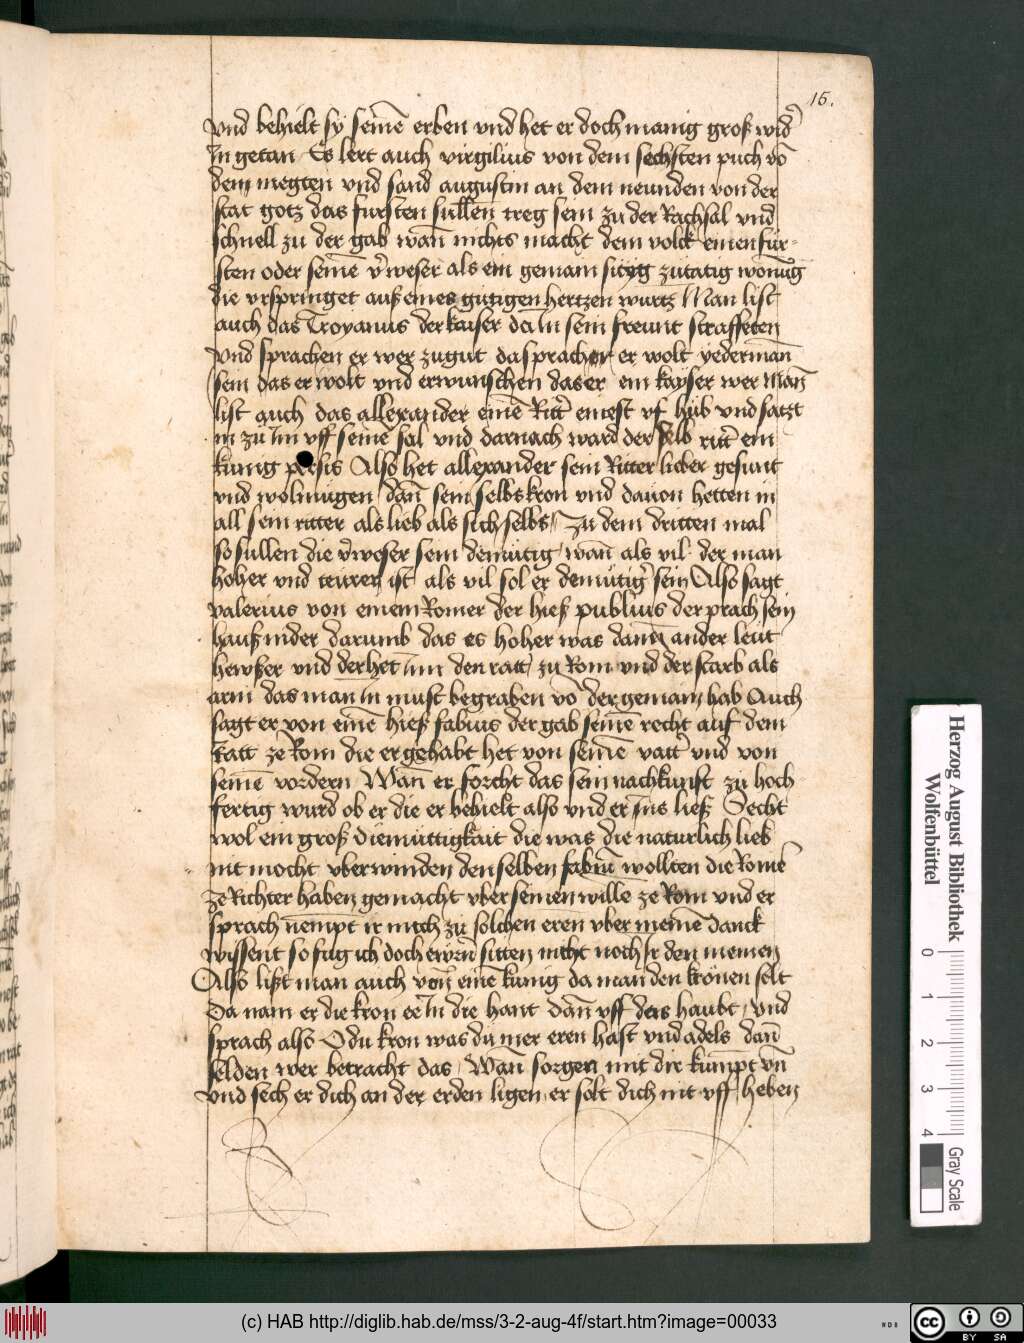 15.
vnd behielt sy seinē erben vnd het er doch manig groß wid̄
In getan Es lert auch virgilius von dem sechsten puch vō
dem megten vnd sand augustin an dem neunden von der
stat gotz das fursten sullen treg sein zu der Rachsal vnd
schnell zu der gab wan̄ nichts macht dem volck einen für-
sten oder seinē v̄weser als ein gemain sityg zutatig wonūg
die vrspringet auß eines gutigen hertzen wurtz Man list
auch das Troyanus der kaiser do In sein freunt straffeten
Vnd sprachen er wer zugut da sprach er er wolt yederman̄
sein das er wolt vnd erwunschen das er ein kayser wer Man̄
list auch das allexander einē Ritt̄ einest vf hub vnd satzt
in zu Im vff seinē sal vnd darnach ward der selb ritt̄ ein
kunig persis Also het allexander sein Ritter lieber gesunt
vnd wolmugen dan̄ sein selbs kron vnd dauon hetten in
all sein ritter als lieb als sich selbs Zu dem dritten mal
so sullen die v̄weser sein demutig wan̄ als vil der man
hoher vnd teurer ist als vil sol er demutiḡ sein Also sagt
valerius von einem Romer der hieß publius der prach sein
hauß nider darumb das es hoher was dann ander leut
hewßer vnd der het Inn den ratt zu Rom vnd der starb als
arm das man In must begraben vō der gemain hab Auch
sagt er von einē hieß fabius der gab seinē recht auf dem
Ratt ze Rom die er gehabt het von seinē vatt̄ vnd von
seinē vordern Wan̄ er forcht das sein nachkunft zu hoch
fertig wurd ob er die er behielt also vnd er ins ließ Secht
wol ein groß diemuttigkait die was die naturlich lieb
nit mocht vberwinden den selben fabiū wollten die Romē
ze Richter haben gemacht vber seinen wille ze Rom vnd er
sprach nempt ir mich zu solchen eren vber meinē danck
wissent so fug ich doch ewrn̄ sitten nicht noch Ir den meinen
Also lißt man auch von einē kunig da man den kronen solt
Da nam er die kron ee In die hant dan̄ vff des haubt vnd
sprach also O du kron was du mer eren hast vnd adels dan̄
selden wer betracht das Wan̄ sorgen mit dir kumpt vn̄
vnd sech er dich an der erden ligen er solt dich nit vff heben
Herzog August Bibliothek
Wolfenbüttel
0 1 2 3 4
Gray Scale
(c) HAB http://diglib.hab.de/mss/3-2-aug-4f/start.htm?image=00033
WDB
cc BY SA